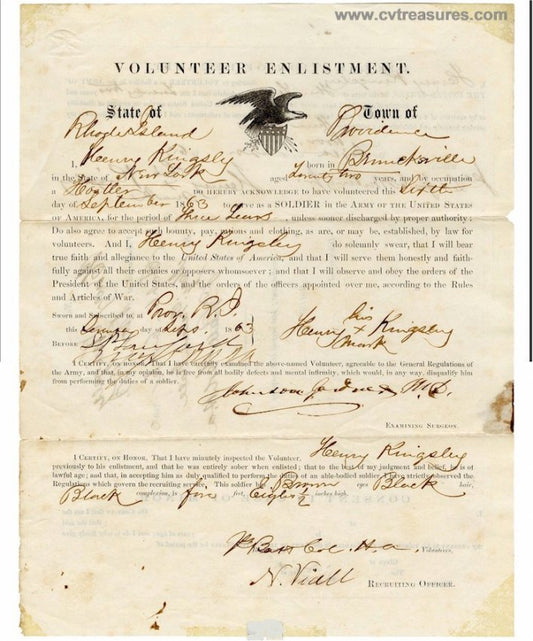 www.cvtreasures.com
VOLUNTEER ENLISTMENT.
State of Town of
Rhode Island Providence
I, Henry Kingsly born in
in the State of New York aged Twenty two years, and by occupation
a Hostler DO HEREBY ACKNOWLEDGE to have volunteered this
day of September 1863 to serve as a SOLDIER in the ARMY OF THE UNITED STATES
OF AMERICA, for the period of Three Years, unless sooner discharged by proper authority;
Do also agree to accept such bounty, pay, rations and clothing, as are, or may be, established, by law for
volunteers. And I, Henry Kingsley do solemnly swear, that I will bear
true faith and allegiance to the United States of America, and that I will serve them honestly and faith-
fully against all their enemies or opposers whomsoever; and that I will observe and obey the orders of the
President of the United States, and the orders of the officers appointed over me, according to the Rules
and Articles of War.
SWORN and SUBSCRIBED to, at Prov. R.I. his
this day of Sept. 1863 Henry x Kingsley
BEFORE mark
I CERTIFY, ON HONOR, That I have carefully examined the above-named Volunteer, agreeable to the General Regulations of
the Army, and that, in my opinion, he is free from all bodily defects and mental infirmity, which would, in any way, disqualify him
from performing the duties of a soldier.
M.D.
EXAMINING SURGEON.
I CERTIFY, ON HONOR, That I have minutely inspected the Volunteer, Henry Kingsley
previously to his enlistment, and that he was entirely sober when enlisted; that to the best of my judgment and belief, he is of
lawful age; and that, in accepting him as duly qualified to perform the duties of an able-bodied soldier, I have strictly observed the
Regulations which govern the recruiting service. This soldier has Brown eyes Black hair,
Black complexion, is five feet, Eight 1/2 inches high.
Col. H.a. Volunteers,
N. Viall
RECRUITING OFFICER.